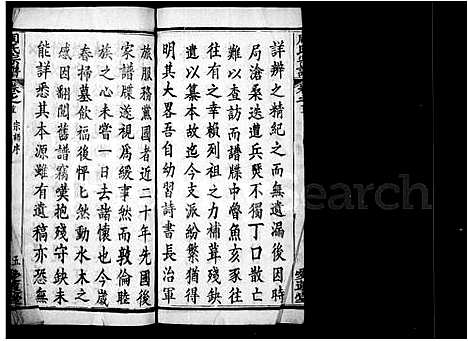 詳辨之精紀之而無遺漏後因時
局滄桑迭遭兵燹不獨丁口散亡
難以查訪而譜牒中魯魚亥豕往
往有之幸賴列祖之力補葺殘缺
遺以纂本故迄今支派紛繁猶得
明其大畧吾自幼習詩書長治軍
旅服務黨國者近二十年先國後
家譜牒遂視爲緩事而敦倫睦
族之心未嘗一日去諸懷也今歲
春掃墓飲福後怦然動水木之
感因翻閱舊譜竊歎抱殘守缺未
能詳悉其本源雖有遺稿亦恐無
宗譜序
五
search